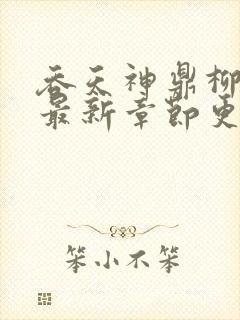 吞天神鼎柳
最新章节更
笨小不笨